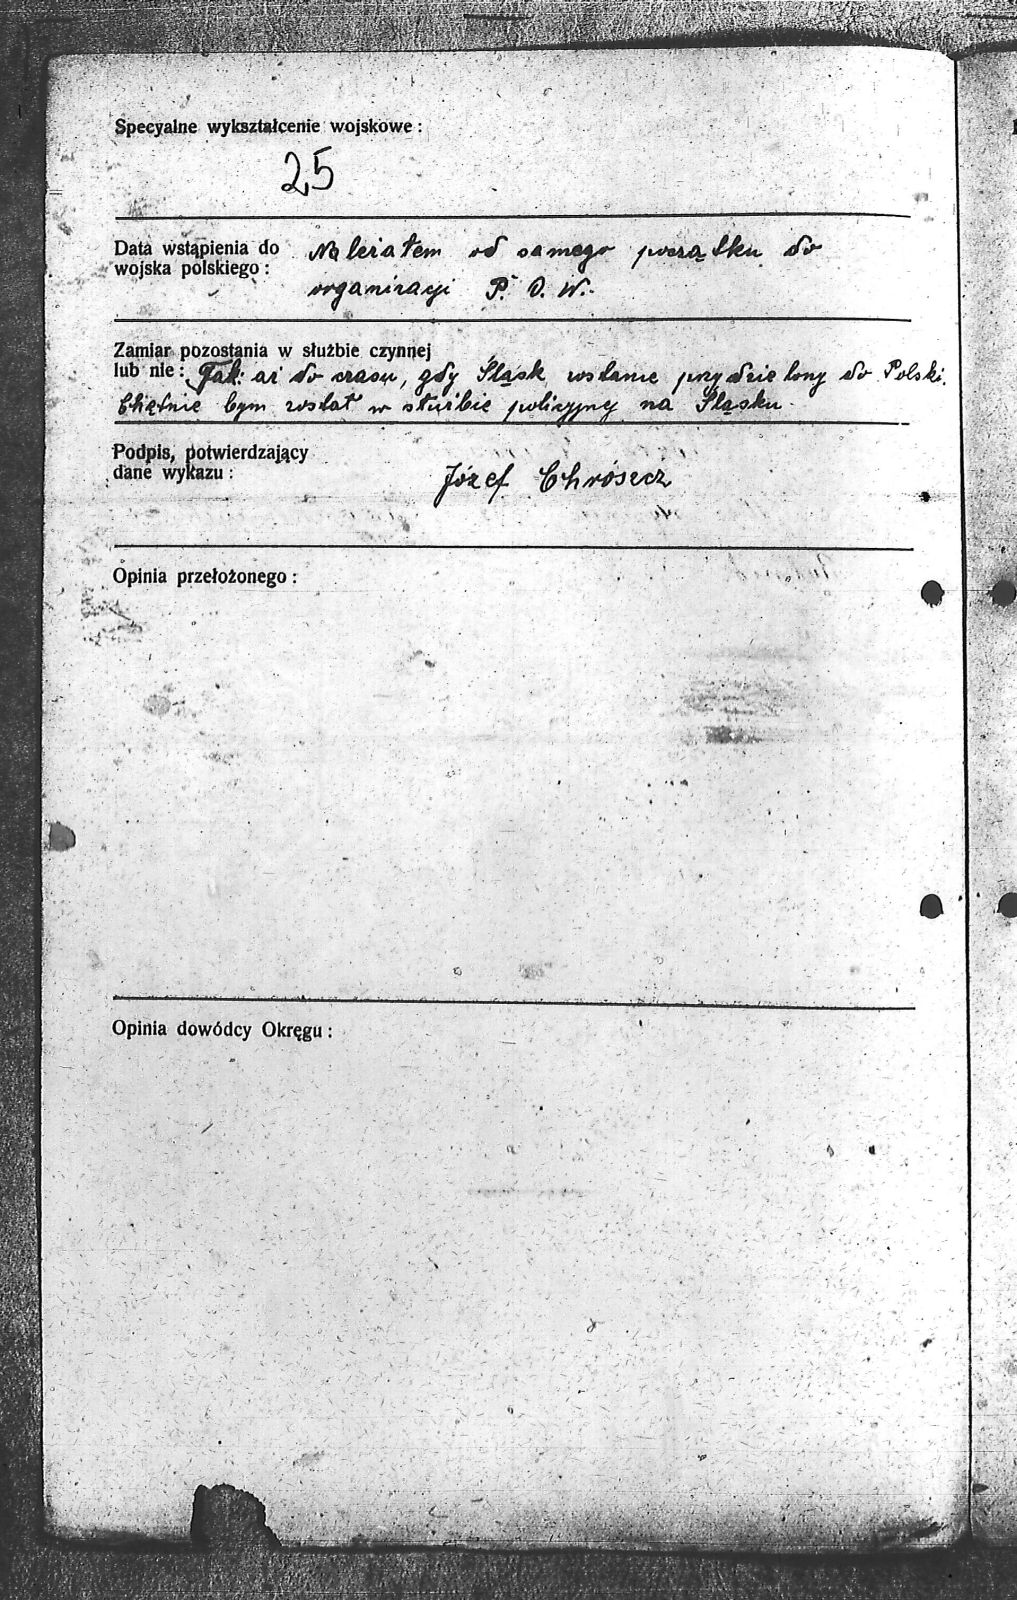 Specyalne wykształcenie wojskowe :
25
Data wstąpienia do
wojska polskiego :
Należałem od samego początku do
organizacyi P. O. W.
Zamiar pozostania w służbie czynnej
lub nie :
Tak: aż do czasu, gdy Śląsk zostanie przydzielony do Polski.
Chętnie bym został w służbie policyjnej na Śląsku.
Podpis, potwierdzający
dane wykazu :
Józef Chrószcz
Opinia przełożonego :
Opinia dowódcy Okręgu :